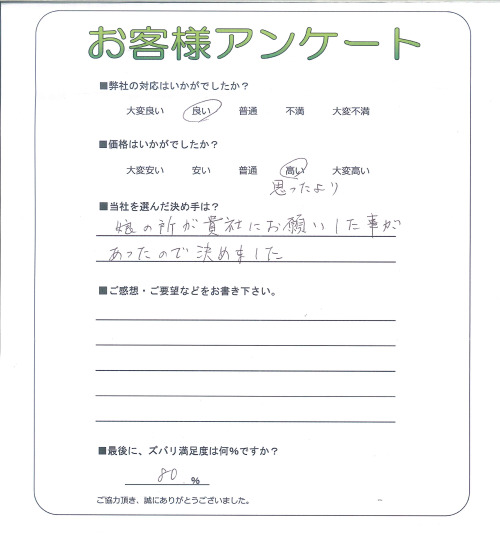 お客様アンケート
■弊社の対応はいかがでしたか？
大変良い 良い 普通 不満 大変不満
■価格はいかがでしたか？
大変安い 安い 普通 高い 大変高い
思ったより
■当社を選んだ決め手は？
娘の所が貴社にお願いした事が
あったので決めました
■ご感想・ご要望などをお書き下さい。
■最後に、ズバリ満足度は何%ですか？
80 %
ご協力頂き、誠にありがとうございました。